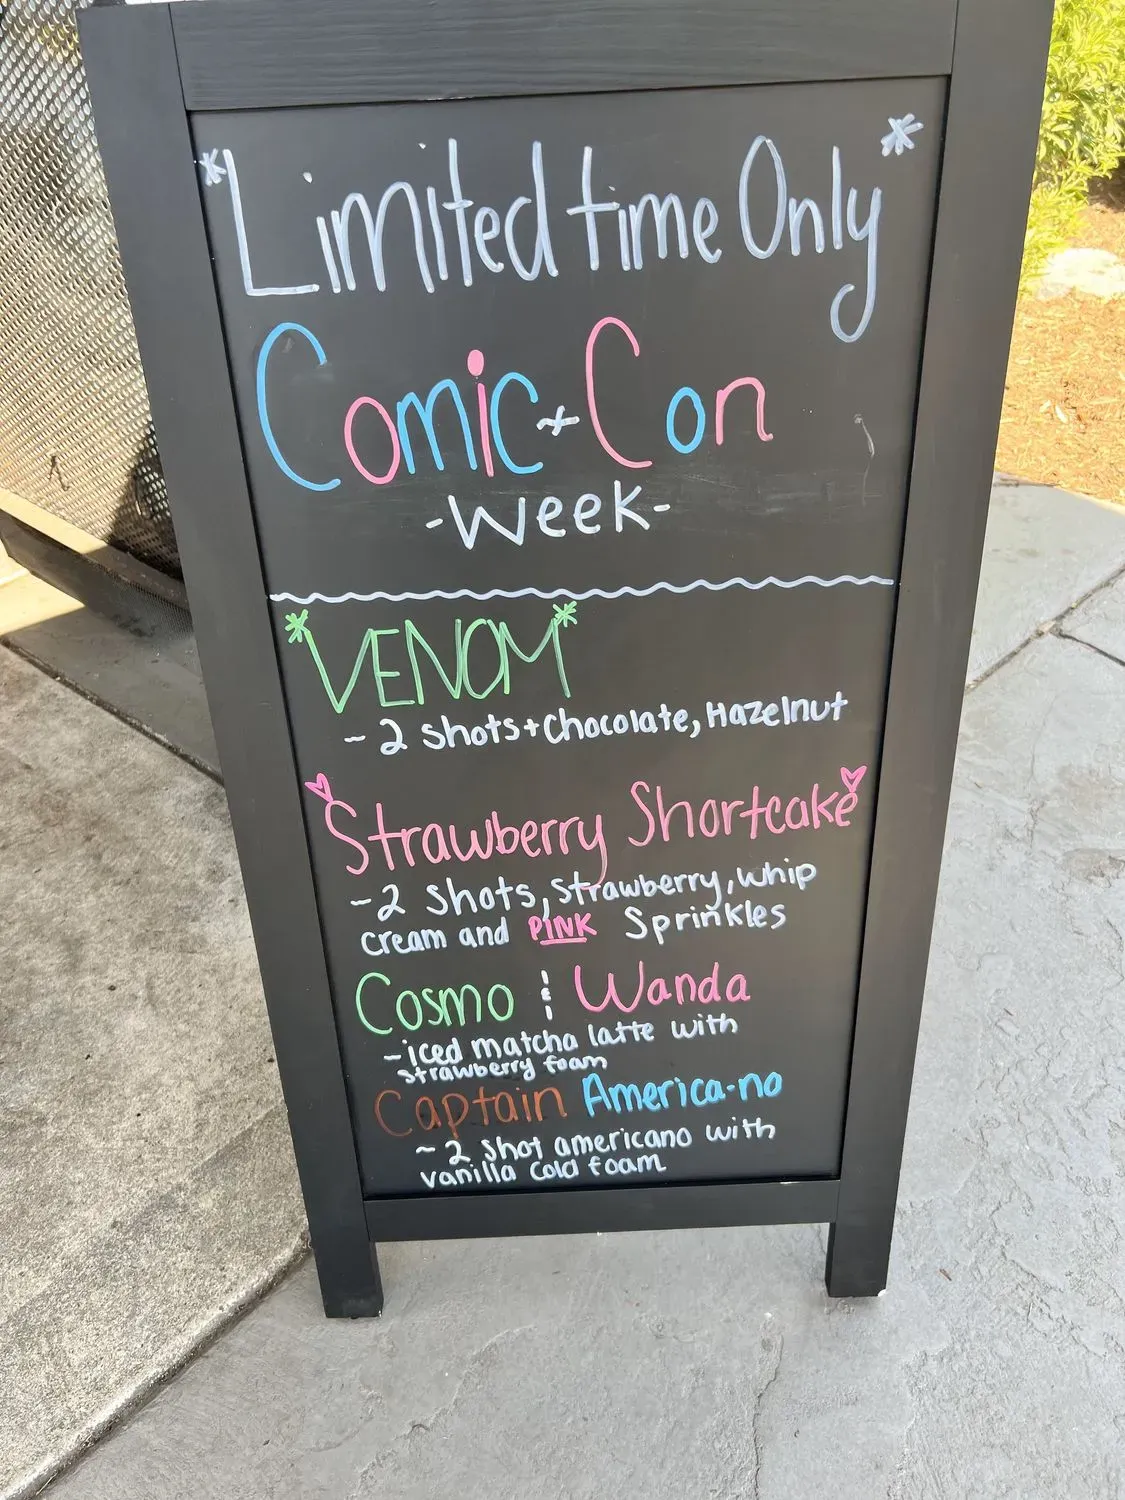 *Limited time Only*
Comic-Con
-Week-
*VENOM*
- 2 shots + Chocolate, Hazelnut
Strawberry Shortcake
- 2 Shots, Strawberry, whip
cream and PINK Sprinkles
Cosmo & Wanda
- iced matcha latte with
strawberry foam
Captain America-no
~ 2 Shot americano with
vanilla cold foam